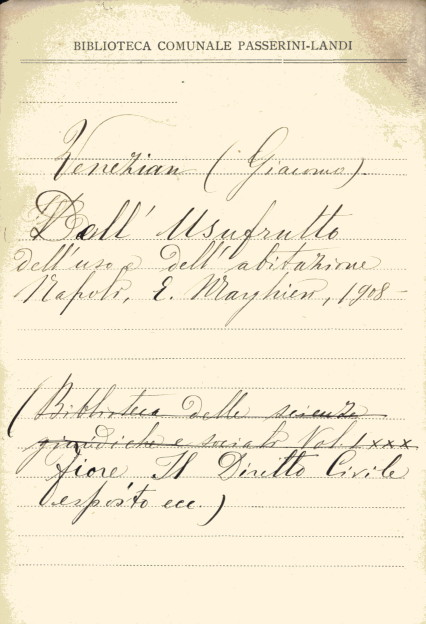 BIBLIOTECA COMUNALE PASSERINI-LANDI
Venezian (Giacomo).
Dell' Usufrutto
dell'uso e dell'abitazione
Napoli, E. Marghieri, 1908-
(Biblioteca delle scienze
giuridiche e sociali Vol. LXXX
Fiore Il Diritto Civile
esposto ecc.)